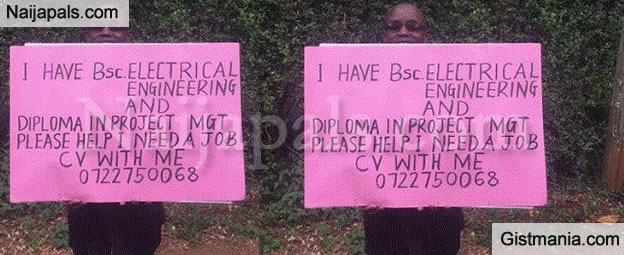 Naijapals.com
I HAVE Bsc. ELECTRICAL
ENGINEERING
AND
DIPLOMA IN PROJECT MGT
PLEASE HELP I NEED A JOB
CV WITH ME
0722750068
I HAVE Bsc. ELECTRICAL
ENGINEERING
AND
DIPLOMA IN PROJECT MGT
PLEASE HELP I NEED A JOB
CV WITH ME
0722750068
Naijapals.com
Gistmania.com